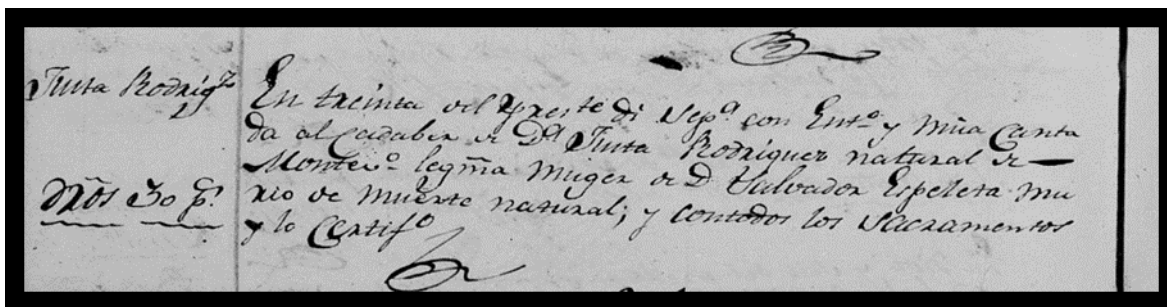 Justa Rodrigz
Dr̃os 30 p.s
En treinta del preste di Sepa con Ento y Misa Canta
da al Cadaber de Da Justa Rodriguez natural de
Montevo legma Muger de D Salvador Espeleta mu
rio de muerte natural; y con todos los Sacramentos
y lo Certifo